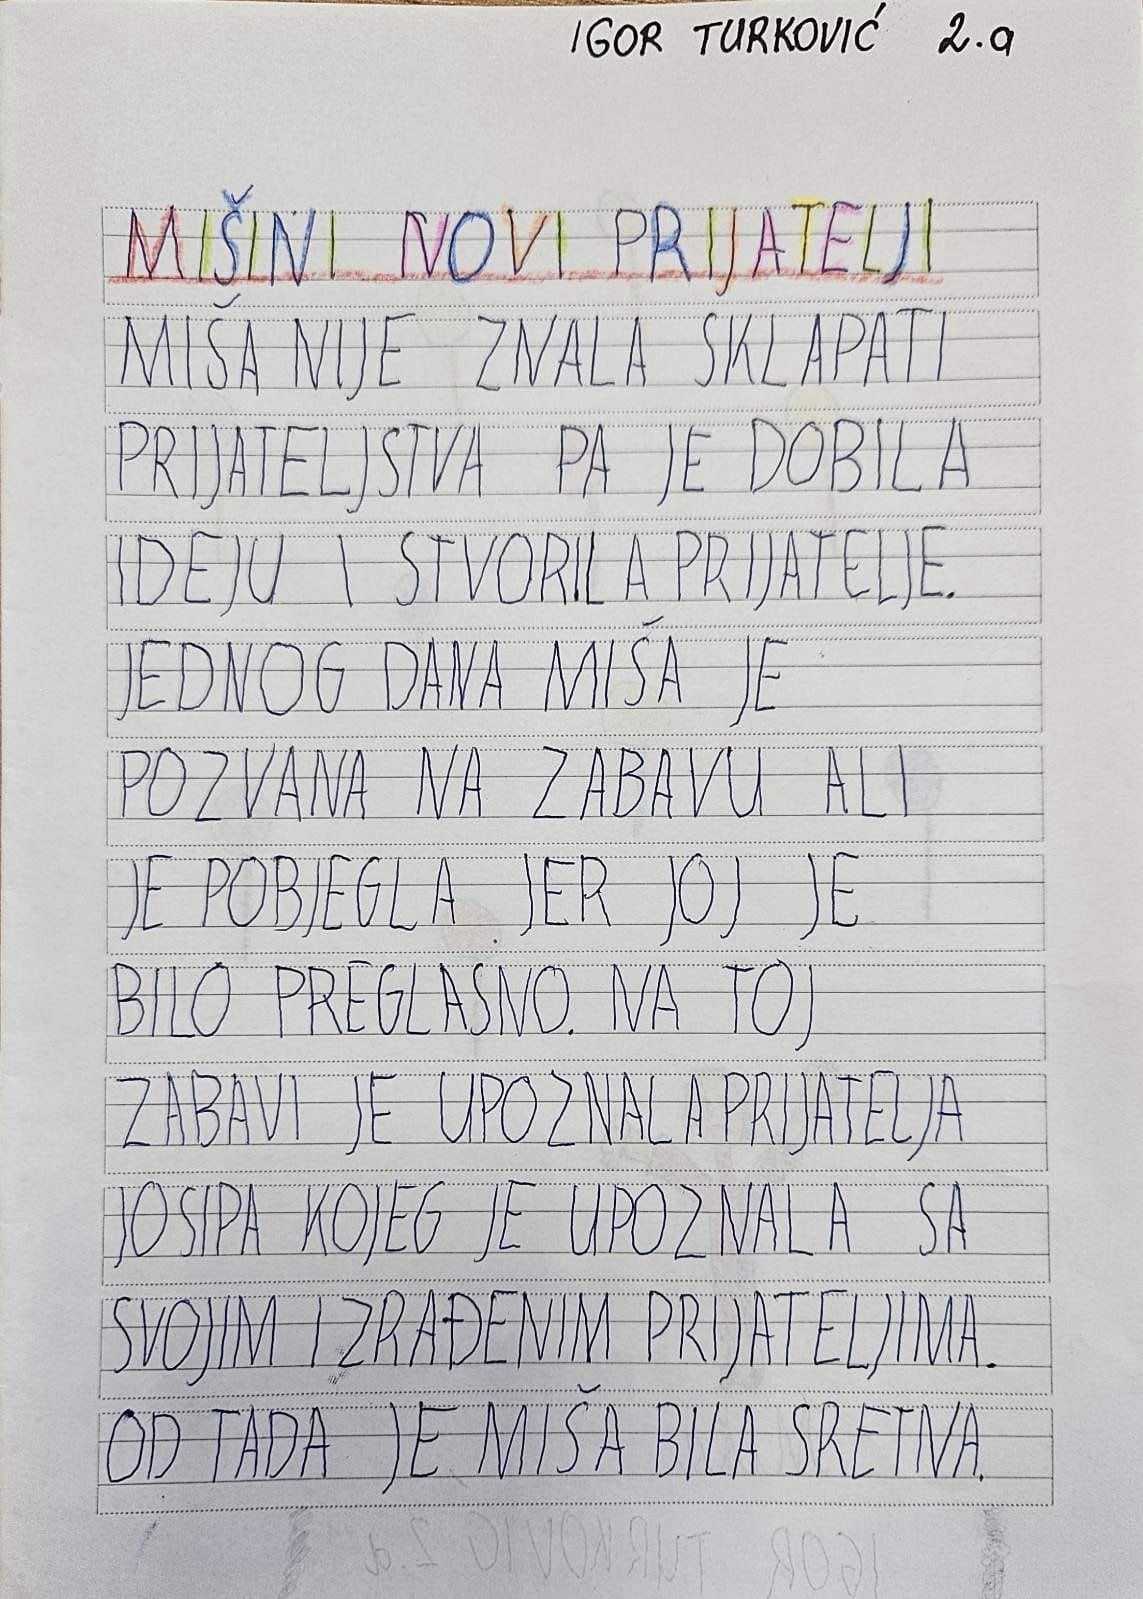 IGOR TURKOVIĆ 2.a
MIŠINI NOVI PRIJATELJI
MIŠA NIJE ZNALA SKLAPATI
PRIJATELJSTVA PA JE DOBILA
IDEJU I STVORILA PRIJATELJE.
JEDNOG DANA MIŠA JE
POZVANA NA ZABAVU ALI
JE POBJEGLA JER JOJ JE
BILO PREGLASNO. NA TOJ
ZABAVI JE UPOZNALA PRIJATELJA
JOSIPA KOJEG JE UPOZNALA SA
SVOJIM IZRAĐENIM PRIJATELJIMA.
OD TADA JE MIŠA BILA SRETNA.
IGOR TURKOVIG 2.a